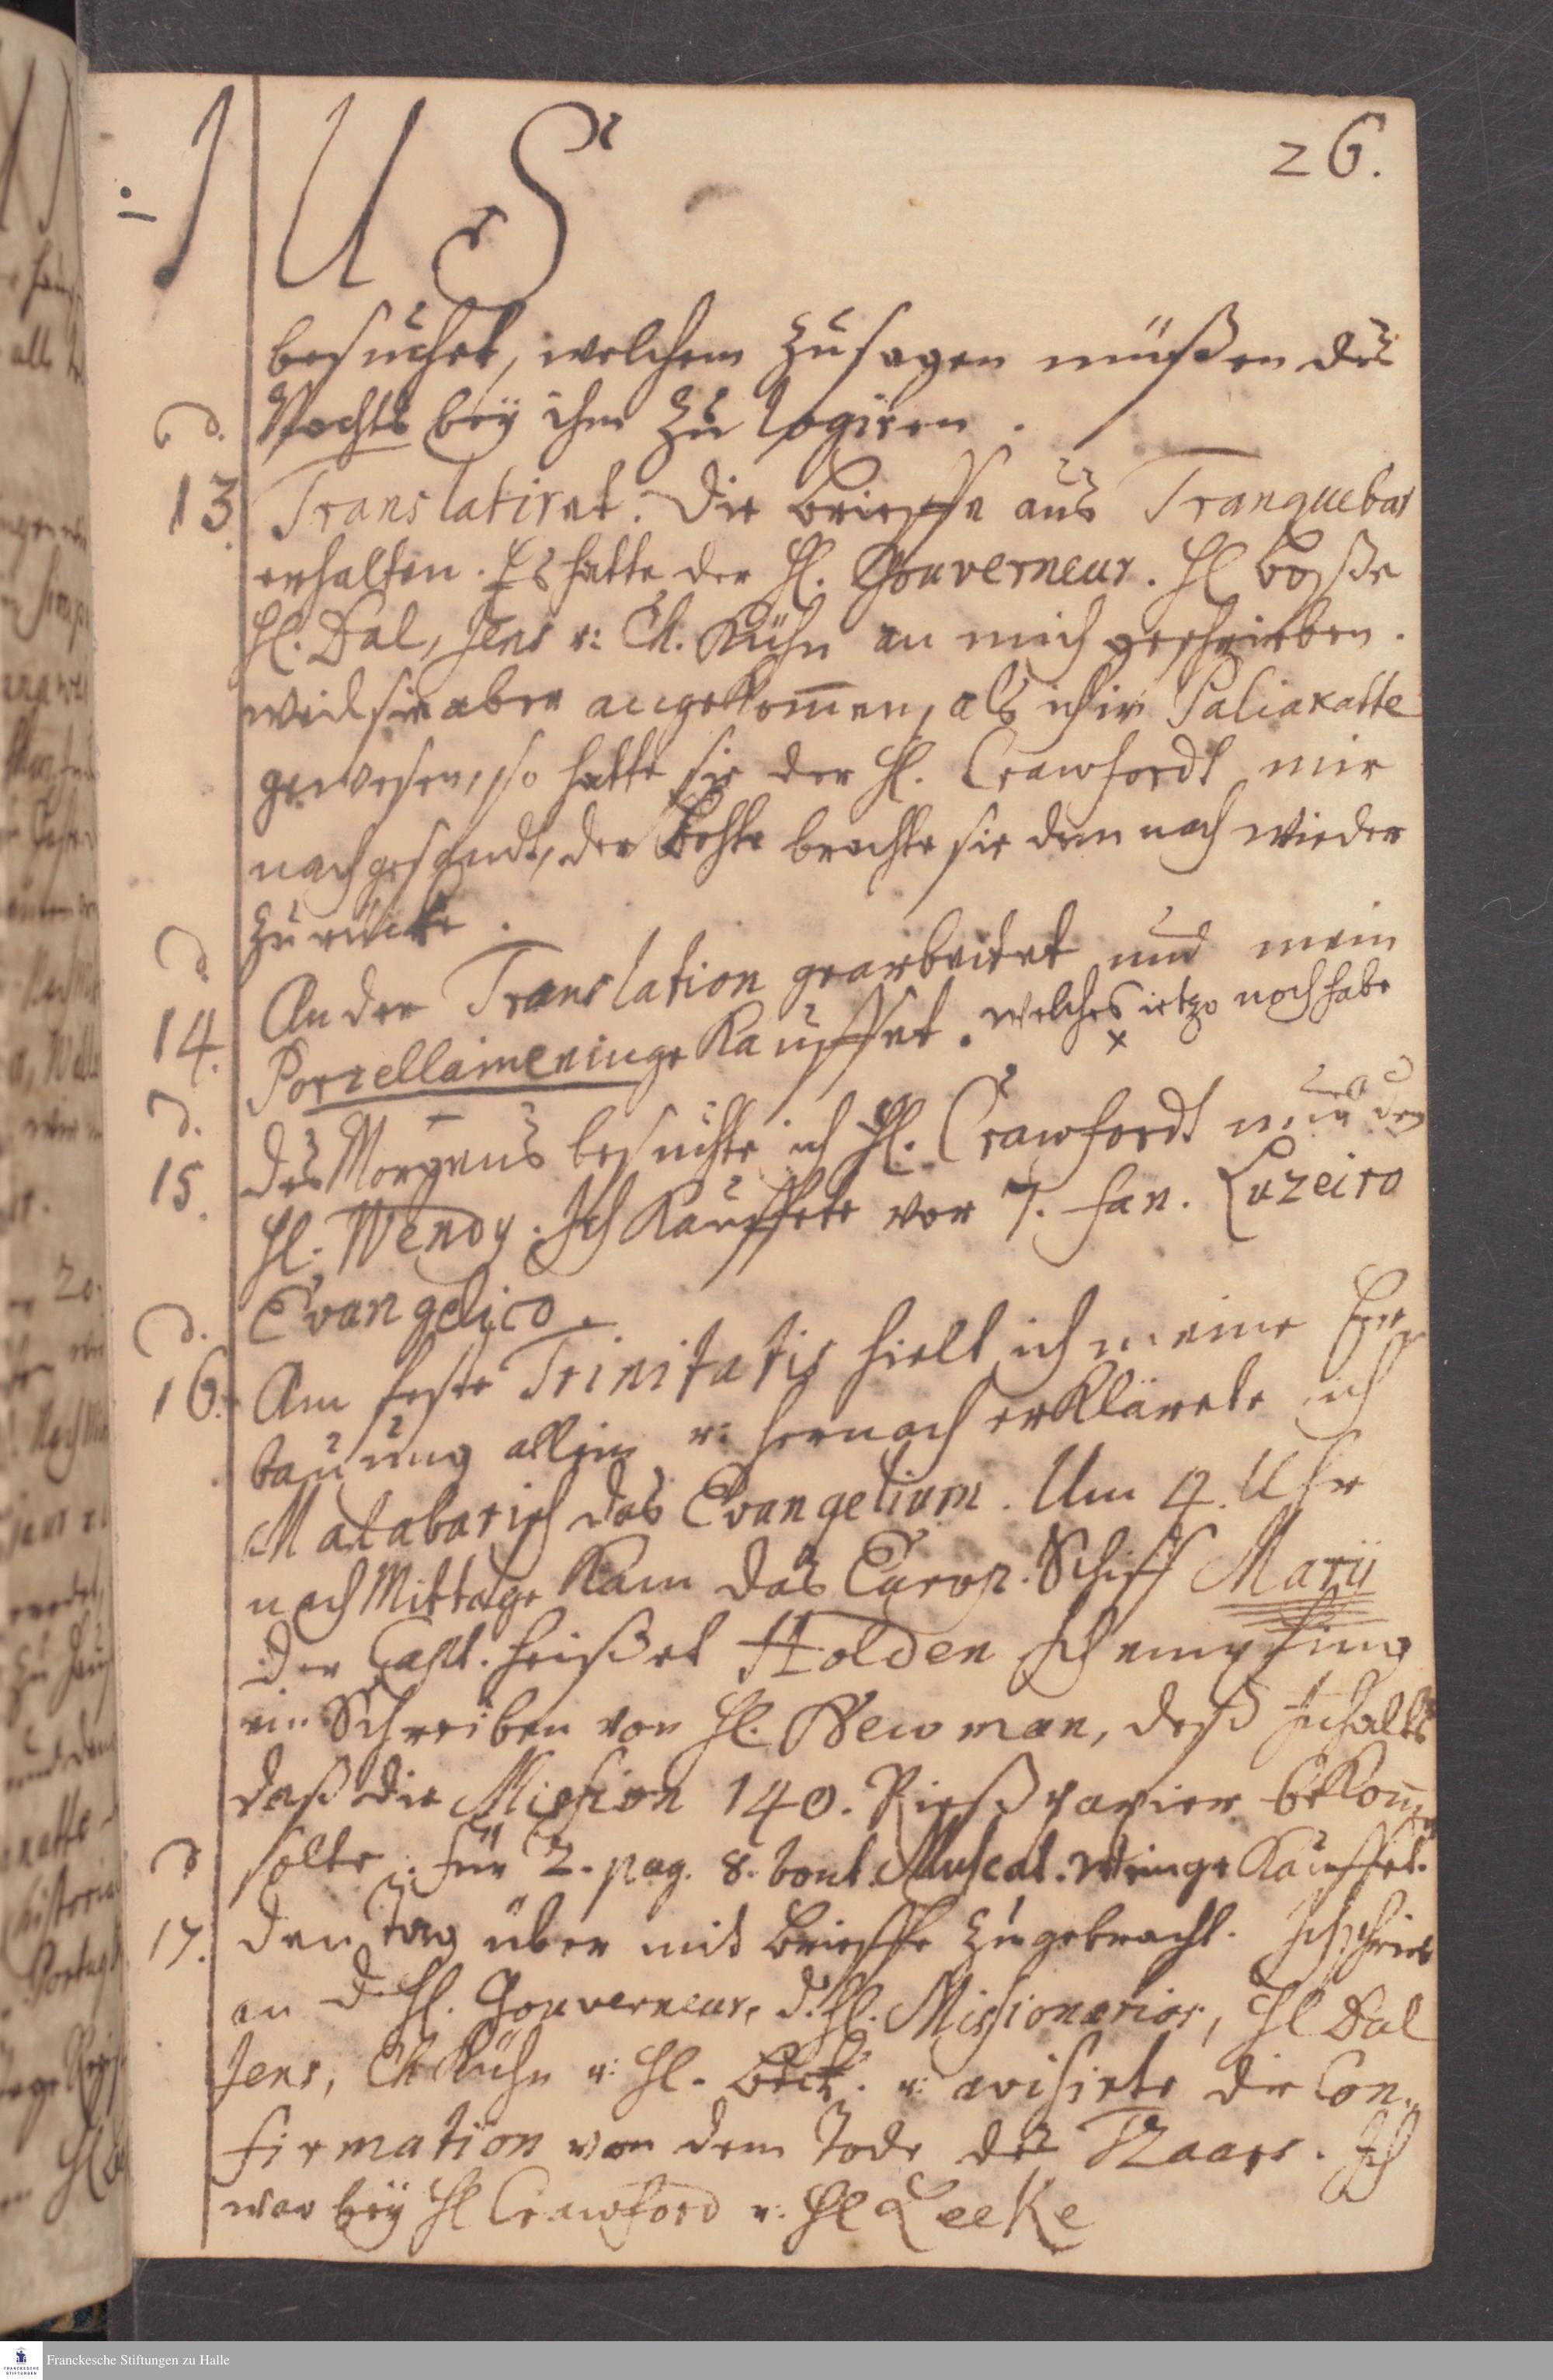 26.
÷ I U S
besuchet, welchem zusagen müßen des
Nachts bey ihm zu logiren.
d. 13. Translatiret. Die Brieffe aus Tranquebar
erhalten. Es hatte der H. Gouverneur. H Boße
H. Dal, Jens u: Ch. Kühn an mich geschrieben.
weil sie aber angekom̅en, als ich in Paliakatte
gewesen, so hatte sie der H. Crawfordt mir
nachgesandt, der Bohte brachte sie dem nach wieder
zurücke.
d 14. An der Translation gearbeitet und mein
Porzellain eingekauffet. welches ietzo noch habe
x
d. 15. des Morgens besuchte ich H. Crawfordt und den
H. Wendy. Ich kauffete vor 7. fan. Luzeiro
Evangelico.
d. 16. Am feste Trinitatis hielt ich meine Er-
bauung allein u: hernach erklärete ich
Malabarisch das Evangelium. Um 4. Uhr
nach Mittage kam das Europ. Schiff Marÿ
der Capt. heißet Holden Ich empfing
ein Schreiben von H. Newman, deß Inhalts
daß die Mission 140. Rieß papier bekom̅en
solte. für 2. pag. 8. bout. Muscat. Wein gekauffet.
d 17. den Tag über mit Brieffe zugebracht. Ich schrieb
an d H. Gouverneur, d. H. Missionarios, H Dal
Jens, Ch Kühn u: H. Beck. u: avisirte die Con-
firmation von dem Tode des Tzaars. Ich
war bey H Crawford u: H Leeke
Franckesche Stiftungen zu Halle